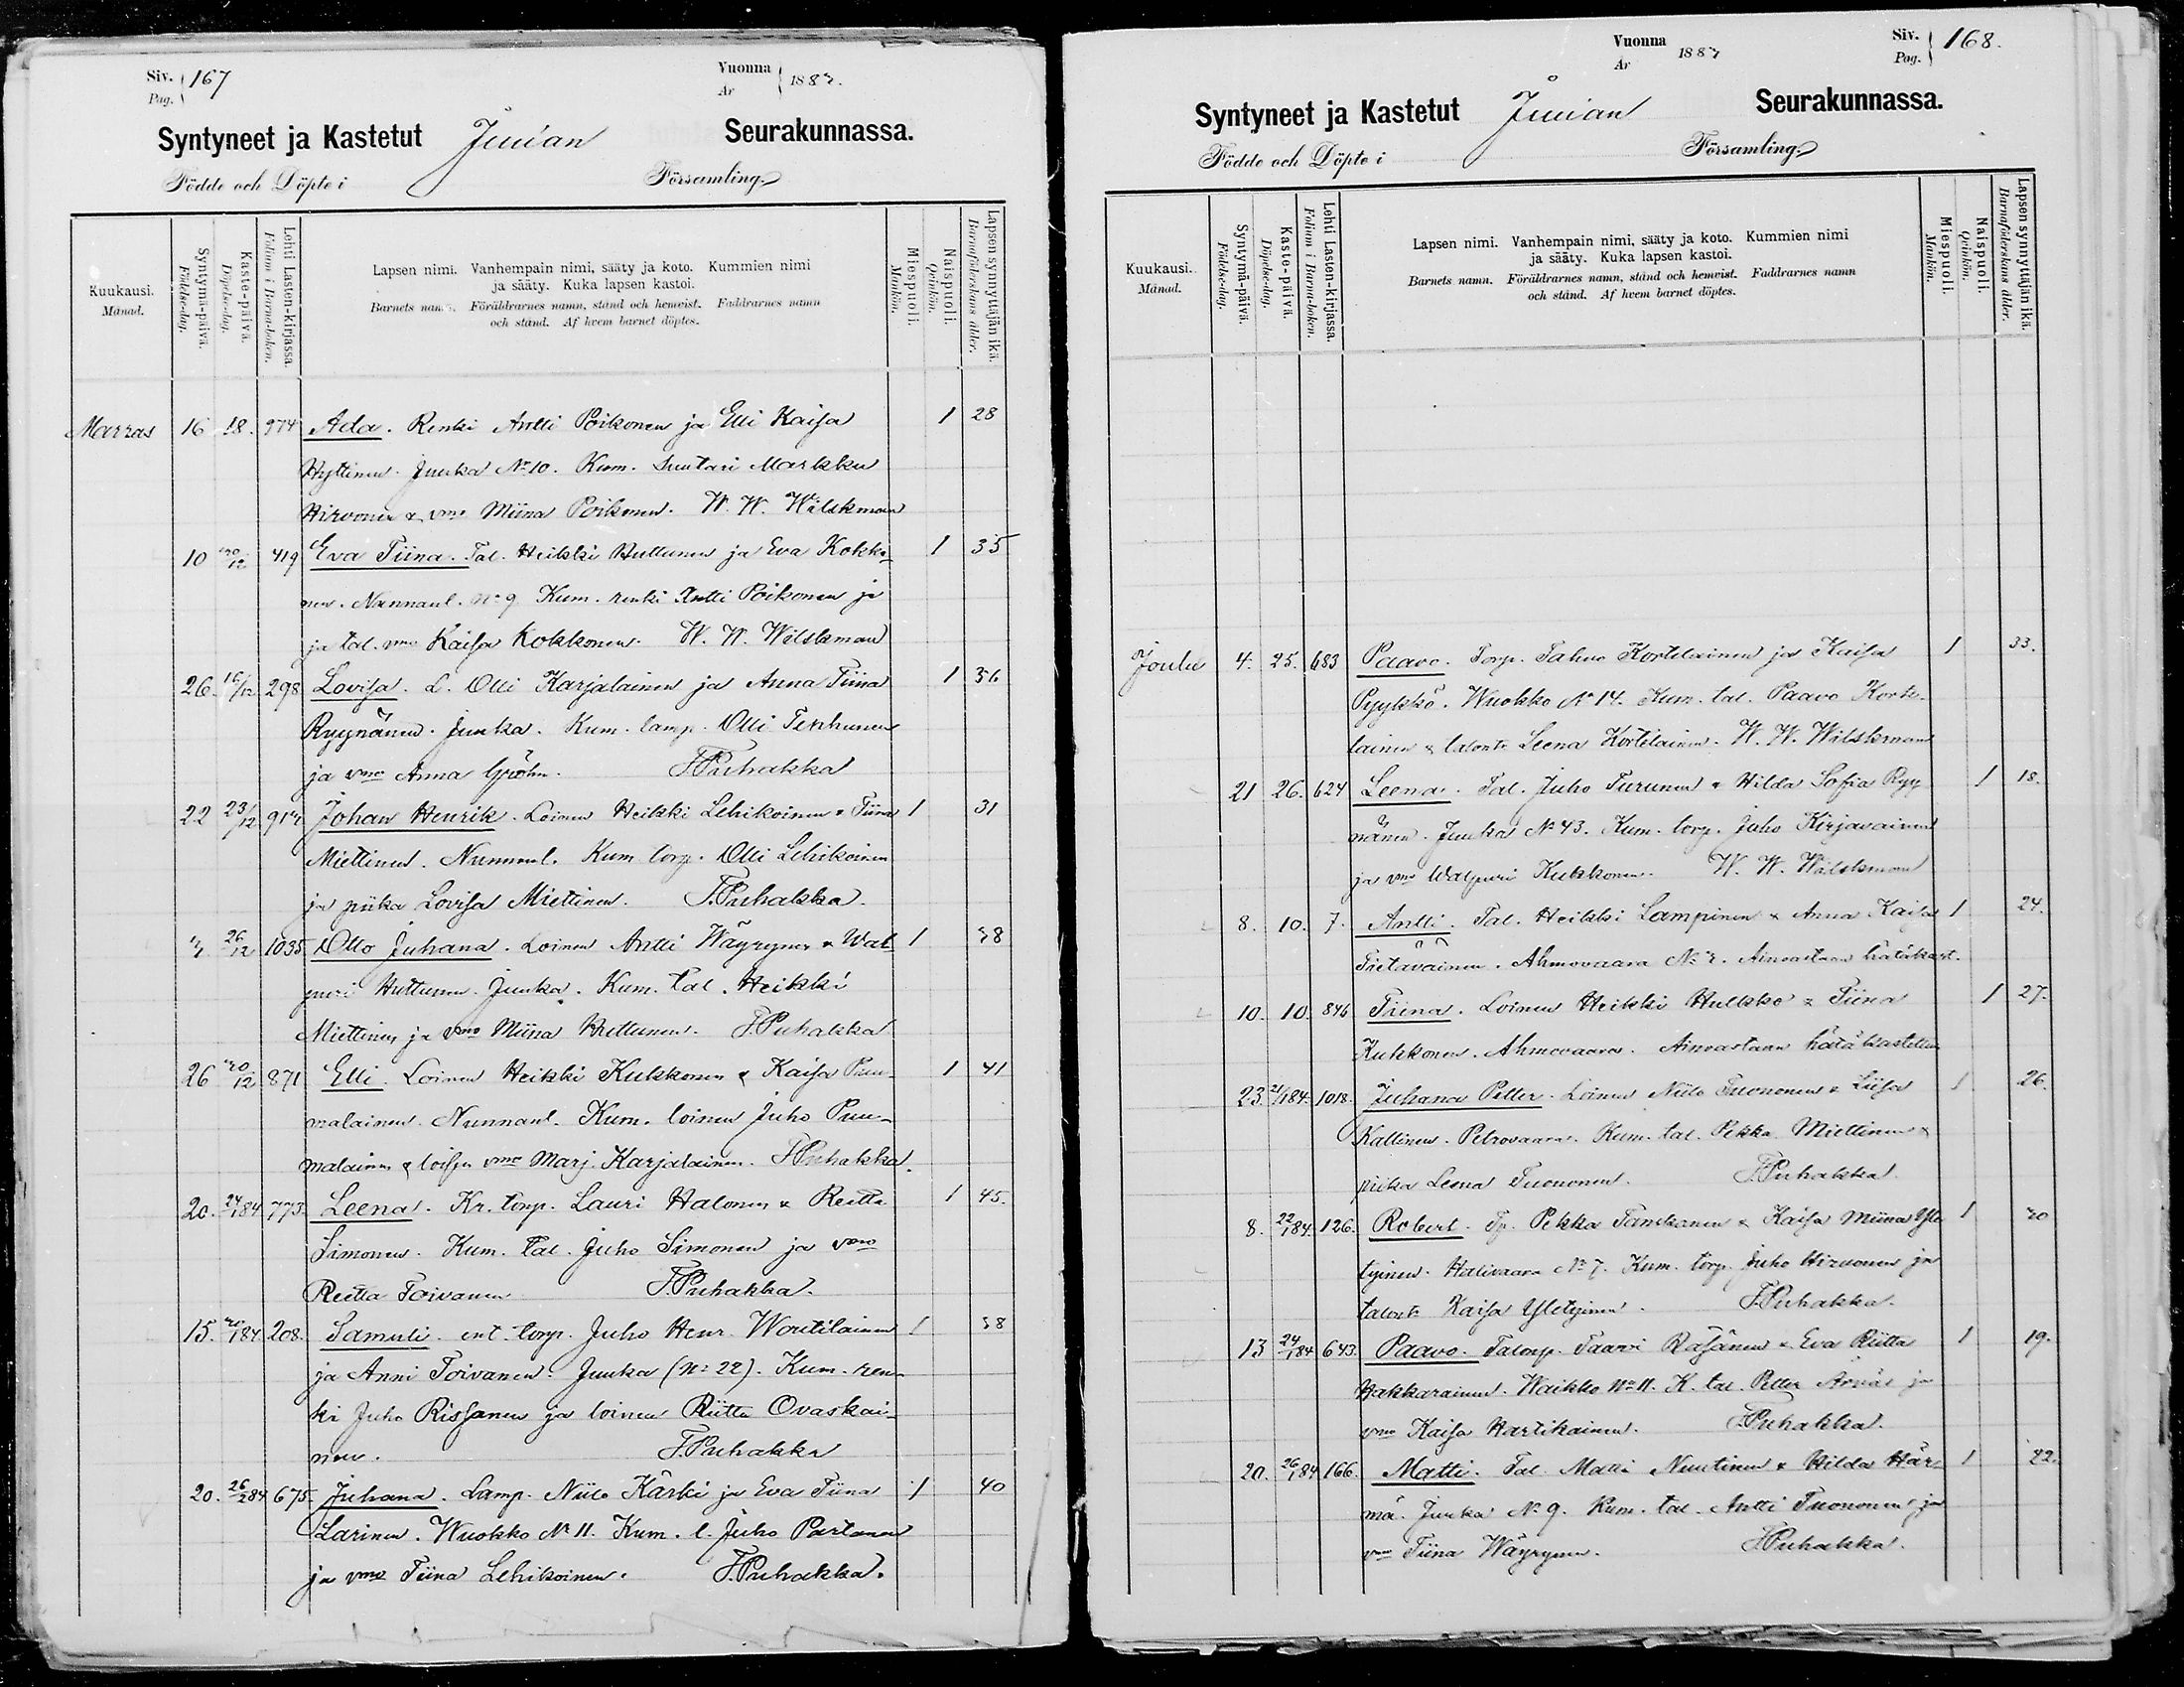 Siv. Pag. 167
Vuonna År 1883.
Syntyneet ja Kastetut Juuan Seurakunnassa.
Födde och Döpte i Församling.
Kuukausi. Månad.
Syntymä-päivä. Födelse-dag.
Kaste-päivä. Döpelse-dag.
Lehti Lasten-kirjassa. Folium i Barna-boken.
Lapsen nimi. Vanhempain nimi, sääty ja koto. Kummien nimi
ja sääty. Kuka lapsen kastoi.
Barnets namn. Föräldrarnes namn, stånd och hemvist. Faddrarnes namn
och stånd. Af hvem barnet döptes.
Miespuoli. Mankön.
Naispuoli. Qvinkön.
Lapsen synnyttäjän ikä. Barnaföderskans ålder.
Marras 16 18. 974 Ada. Renki Antti Poikonen ja Elli Kaisa 1 28
Hyttinen. Juuka No 10. Kum. Suutari Markku
Hirvonen & vmo Miina Poikonen. W. W. Wilskman
10 20/12 419 Eva Tiina. Tal. Heikki Huttunen ja Eva Kokko- 1 35
nen. Nunnanl. No 9 Kum. renki Antti Poikonen ja
ja tal. vmo Kaisa Kokkonen. W. W. Wilskman
26. 16/12 298 Lovisa. L. Olli Karjalainen ja Anna Tiina 1 36
Ryynänen. Juuka. Kum. lamp. Olli Tenhunen
ja vmo Anna Gröhn. F. Puhakka
22 23/12 912 Johan Henrik. Loinen Heikki Lehikoinen & Tiina 1 31
Miettinen. Nunnanl. Kum torp. Olli Lehikoinen
ja piika Lovisa Miettinen. F. Puhakka.
26/12 1035 Otto Juhana. Loinen Antti Wäyrynen & Wal- 1 38
puri Huttunen. Juuka. Kum. tal. Heikki
Miettinen ja vmo Miina Huttunen. F. Puhakka
26 20/12 871 Elli. Loinen Heikki Kukkonen & Kaisa Puu- 1 41
malainen. Nunnanl. Kum. loinen Juho Puu-
malainen & loisen vmo Marj. Karjalainen. F. Puhakka.
20. 24/1 84 773. Leena. Kr. torp. Lauri Halonen & Reitta 1 45.
Simonen. Kum. tal. Juho Simonen ja vmo
Reitta Toivanen F. Puhakka.
15. 20/1 84 208. Samuli. ent. torp. Juho Henr. Woutilainen 1 38
ja Anni Toivanen. Juuka (No 22). Kum. ren-
ki Juho Rissanen ja loinen Riitta Ovaskai-
nen. F. Puhakka
20. 26/2 84 675. Juhana. Lamp. Niilo Kärki ja Eva Tiina 1 40
Larinen. Wuokko No 11. Kum. l. Juho Partanen
ja vmo Tiina Lehikoinen. F. Puhakka.
Vuonna År 1883
Siv. Pag. 168.
Syntyneet ja Kastetut Juuan Seurakunnassa.
Födde och Döpte i Församling.
Kuukausi. Månad.
Syntymä-päivä. Födelse-dag.
Kaste-päivä. Döpelse-dag.
Lehti Lasten-kirjassa. Folium i Barna-boken.
Lapsen nimi. Vanhempain nimi, sääty ja koto. Kummien nimi
ja sääty. Kuka lapsen kastoi.
Barnets namn. Föräldrarnes namn, stånd och hemvist. Faddrarnes namn
och stånd. Af hvem barnet döptes.
Miespuoli. Mankön.
Naispuoli. Qvinkön.
Lapsen synnyttäjän ikä. Barnaföderskans ålder.
Joulu 4. 25. 683 Paavo. Torp. Tahvo Kortelainen ja Kaisa 1 33.
Pyykkö. Wuokko No 14. Kum. tal. Paavo Korte-
lainen & Leena Kortelainen. W. W. Wilskman
21 26. 624 Leena. Tal. Juho Turunen & Hilda Sofia Ryy 1 18.
nänen. Juuka No 43. Kum. torp. Juho Kirjavainen
ja vmo Walpuri Kukkonen. W. W. Wilskman
8. 10. 7. Antti. Tal. Heikki Lampinen & Anna Kaisa 1 24.
Tietäväinen. Ahmovaara No 2. Ainoastaan hätäkast.
10. 10. 846 Tiina. Loinen Heikki Hulkko & Tiina 1 27.
Kukkonen. Ahmovaara. Ainoastaan hätäkastettu
23. 21/1 84. 1018. Juhana Petter. Loinen Niilo Tuononen & Liisa 1 26.
Kallinen. Petrovaara. Kum. tal. Pekka Miettinen &
piika Leena Tuononen. F. Puhakka
8. 22/1 84. 126. Robert. Tp. Pekka Tanskanen & Kaisa Miina Yle 1 20
tyinen. Halivaara No 7. Kum. torp. Juho Hirvonen ja
Kaisa Yletyinen. F. Puhakka.
13 24/1 84 643. Paavo. Talonp. Taavi Räsänen & Eva Riitta 1 19.
Hakkarainen. Waikko No 11. K. tal. Petter Ärväs ja
vmo Kaisa Hartikainen. F. Puhakka.
20. 26/1 84 166. Matti. Tal. Matti Nuutinen & Hilda Här- 1 22.
mä. Juuka No 9. Kum. tal. Antti Tuononen ja
vmo Tiina Wäyrynen. F. Puhakka.